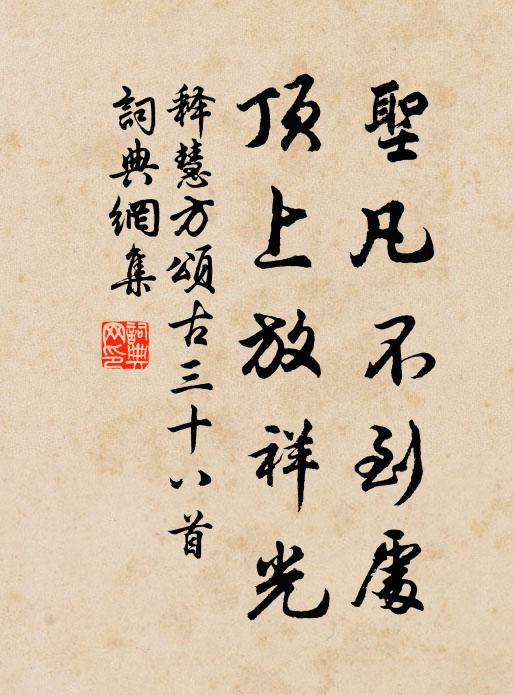 聖凡不到處
頂上放祥光
释慧方頌古三十八首
詞典網集
詞典网印